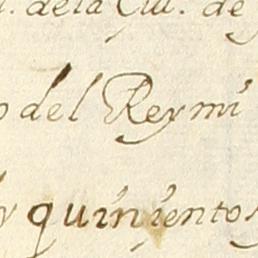 de la Ciu. de
del Rey mi
y quinientos